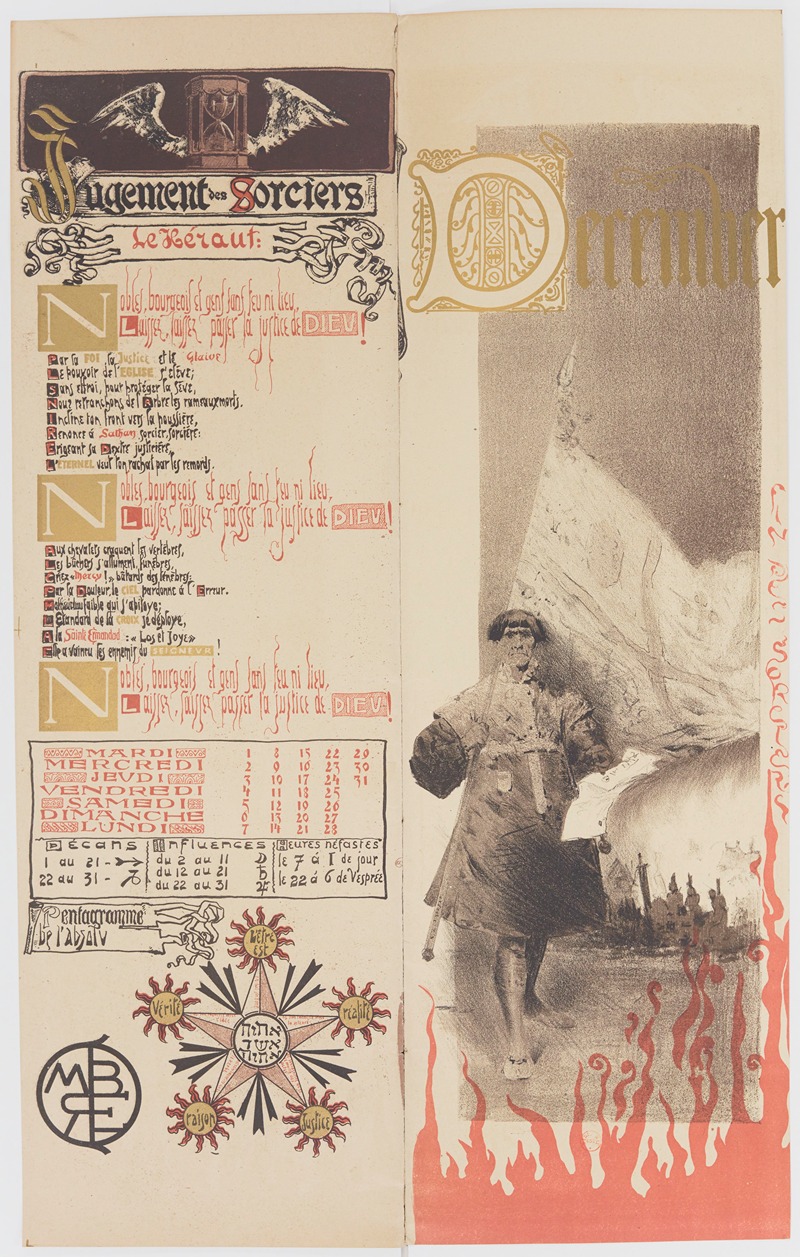 Jugement des Sorciers
Le Héraut:
Nobles, bourgeois et gens sans feu ni lieu,
Laissez, laissez passer la justice de DIEU!
Par la FOI, la Justice et le Glaive
Le pouvoir de l'EGLISE s'élève;
Sans effroi, pour protéger la sève,
Nous retranchons de l'Arbre les rameaux morts.
Incline ton front vers la poussière,
Renonce à Sathan sorcier, sorcière:
Erigeant sa Dextre justicière,
L'ETERNEL veut ton rachat par les remords.
Nobles, bourgeois et gens sans feu ni lieu,
Laissez, laissez passer la justice de DIEU!
Aux chevalets craquent les vertèbres,
Les bûchers s'allument, funèbres,
Criez «Mercy!», bâtards des ténèbres:
Par la Douleur, le CIEL pardonne à l'Erreur.
faible qui s'apitoye;
L'Etandard de la CROIX se déploye,
A la Sainte Ermandad: «Los et Joye»
Elle a vaincu les ennemis du SEIGNEUR!
Nobles, bourgeois et gens sans feu ni lieu,
Laissez, laissez passer la justice de DIEU!
MARDI 1 8 15 22 29
MERCREDI 2 9 16 23 30
JEUDI 3 10 17 24 31
VENDREDI 4 11 18 25
SAMEDI 5 12 19 26
DIMANCHE 6 13 20 27
LUNDI 7 14 21 28
Décans Influences Heures néfastes
1 au 21 - ♐ du 2 au 11 ☽ le 7 à 1 de jour
22 au 31 - ♑ du 12 au 21 ♄ le 22 à 6 de Vesprée
du 22 au 31 ♃
Pentagramme
de l'absolu
L'Être
est
Vérité
réalité
אהיה
אשר
אהיה
raison
justice
MBRE
December